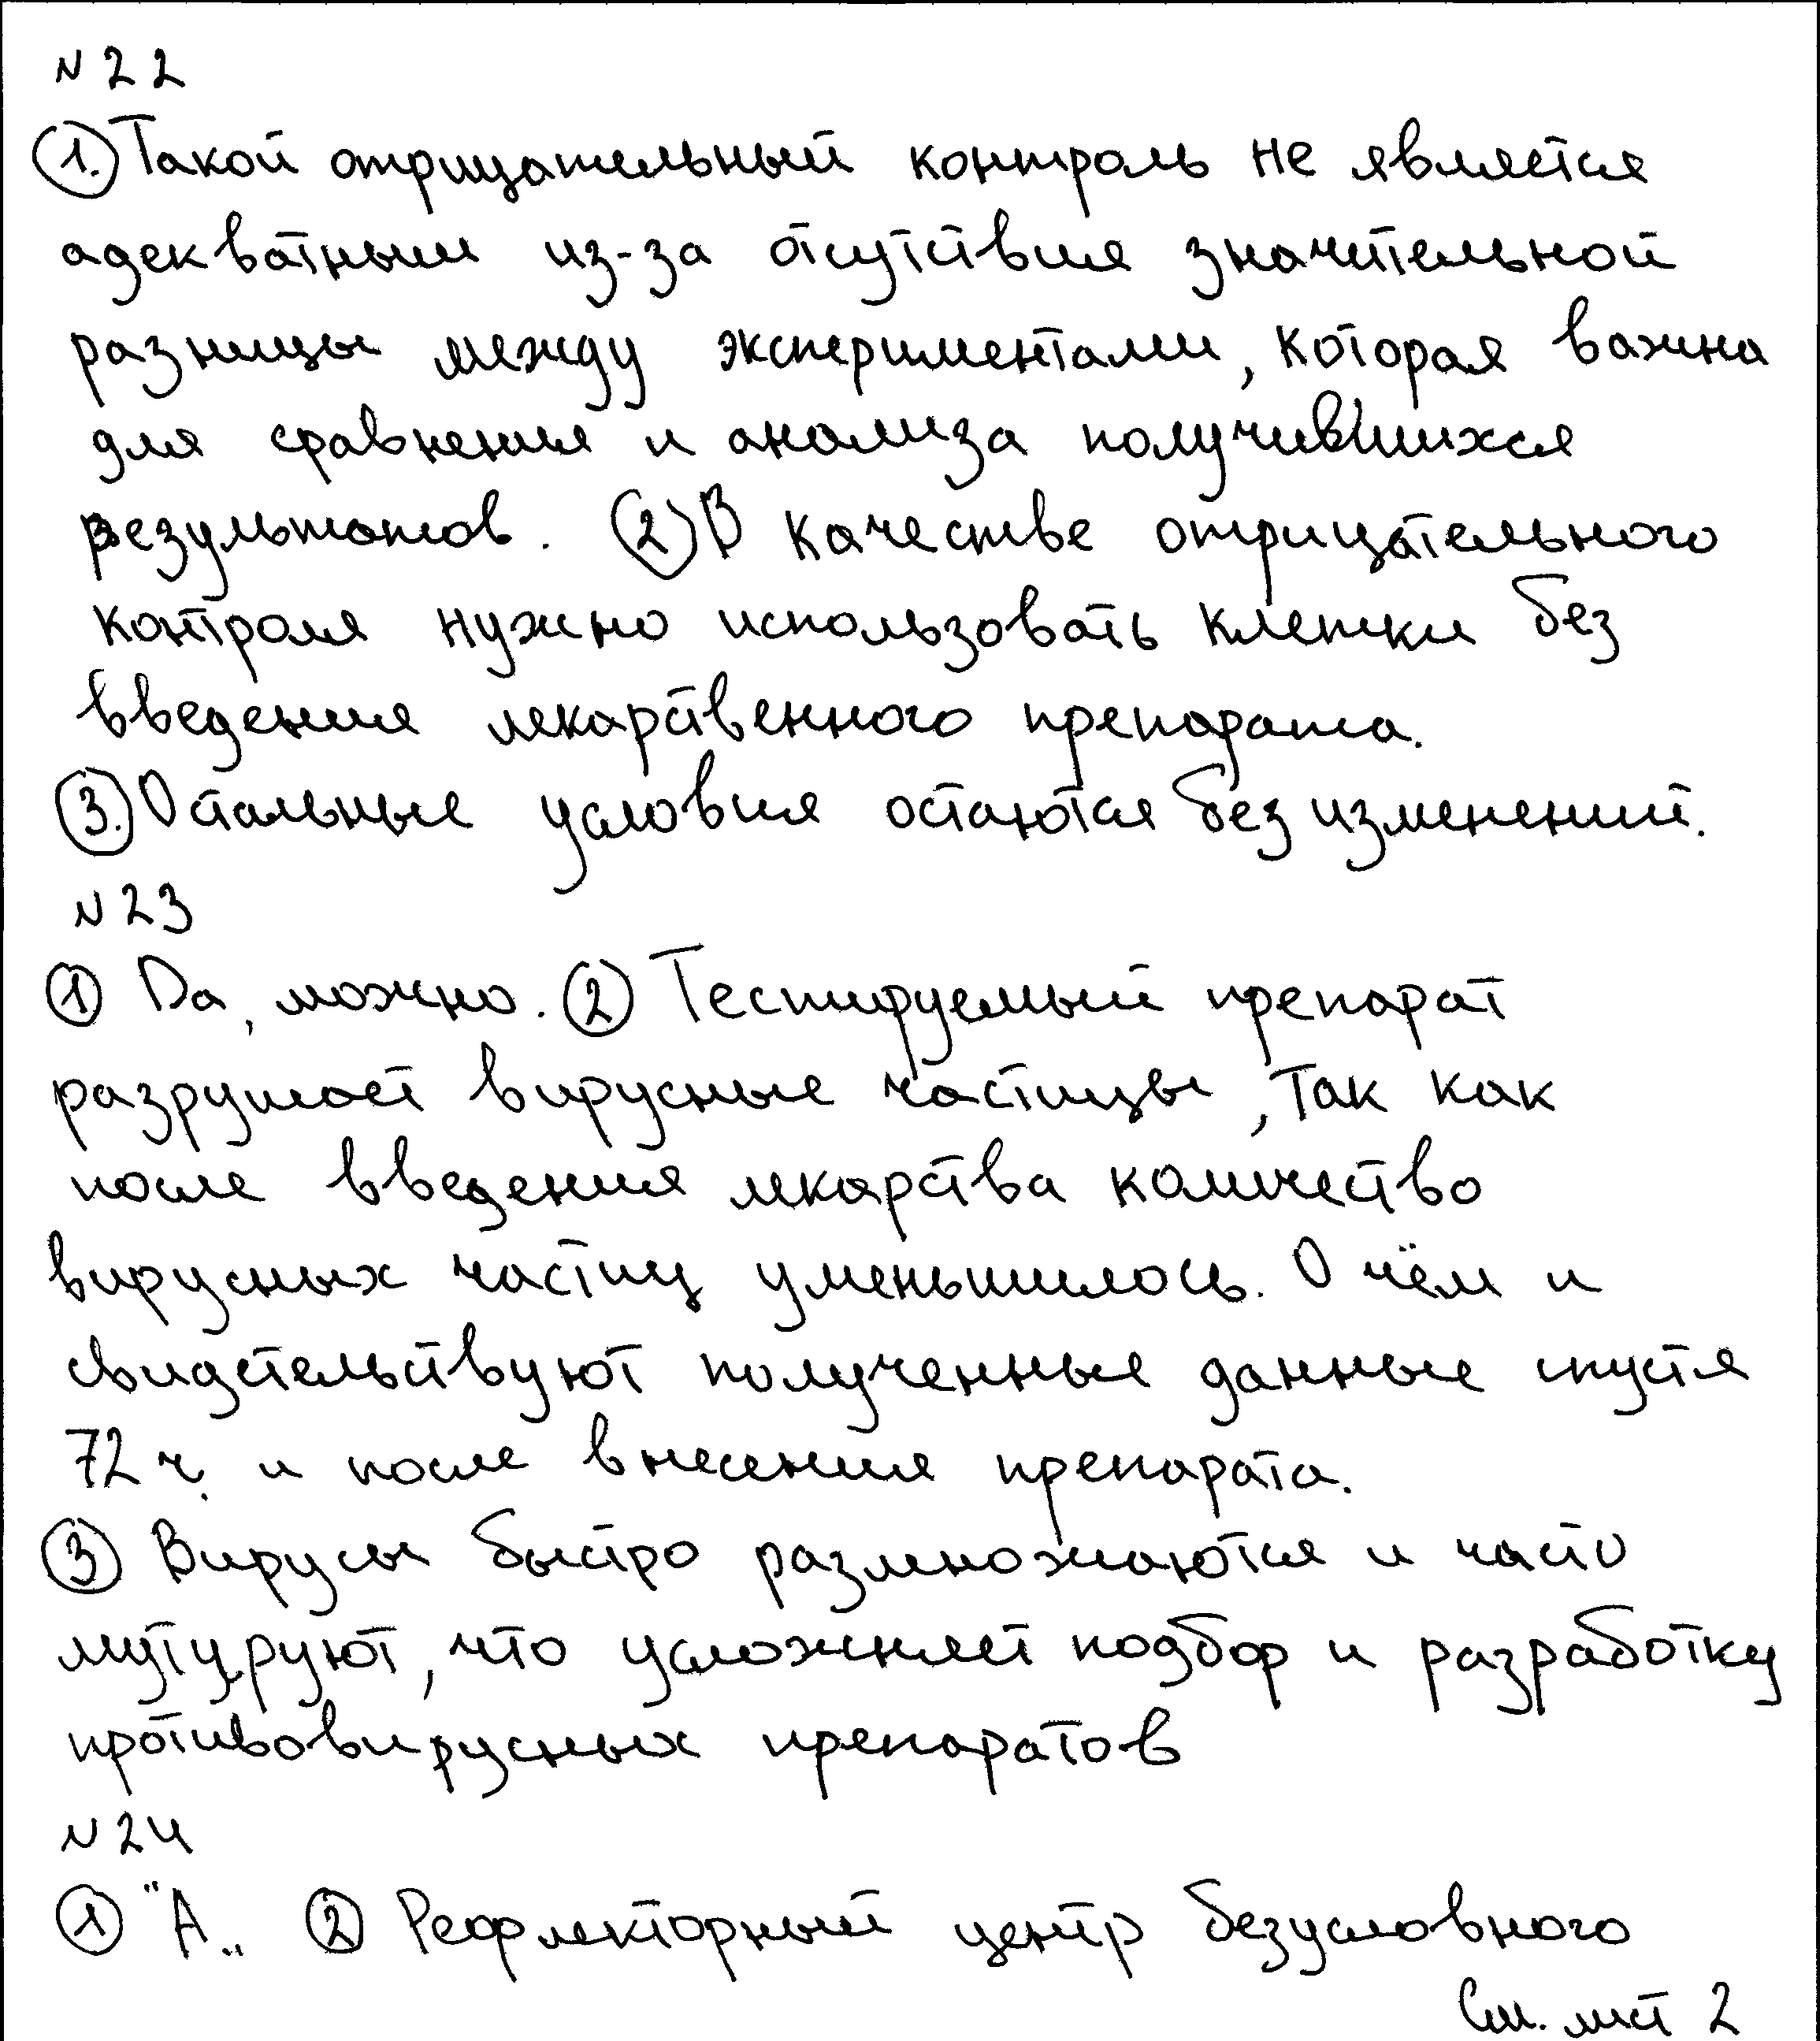 №22
1. Такой отрицательный контроль не является
адекватным из-за отсутствия значительной
разницы между экспериментами, которая важна
для сравнения и анализа получившихся
результатов. 2) В качестве отрицательного
контроля нужно использовать клетки без
введения лекарственного препарата.
3. Остальные условия остаются без изменений.
№23
1 Да, можно. 2 Тестируемый препарат
разрушает вирусные частицы, так как
после введения лекарства количество
вирусных частиц уменьшилось. О чём и
свидетельствуют полученные данные спустя
72 ч. и после внесения препарата.
3 Вирусы быстро размножаются и часто
мутируют, что усложняет подбор и разработку
противовирусных препаратов
№24
1 "А„ 2 Рефлекторный центр безусловного
См. лист 2